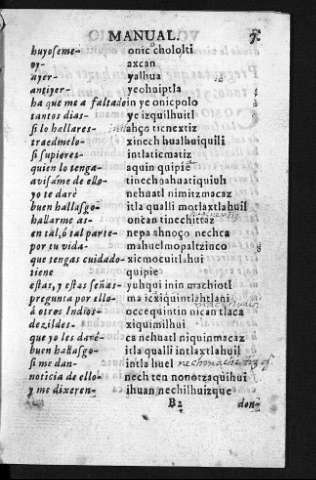 MANUAL.
huyoseme- onicᵒchololti
oy- axcan
ayer- yalhua
antiyer- yeohuiptla
ha que me a faltado in ye onicpolo
tantos dias- ye izquilhuitl
si lo hallares- inahço ticnextiz
traedmelo- xinech hualhuiquili
si supieres- intlaticmatiz
quien lo tenga- aquin quipiē
avisame de ello- tinechoahuatiquiuh
yo te daré nehuatl nimitzmacaz
buen hallasgo- itla qualli motlaxtlahuil
hallarme as- oncan tinechittaz
en tal, ó tal parte- nepa ahnoço nechca
por tu vida- mahuelmopaltzinco
que tengas cuidado- xicmocuitlahui
tiene quipie
estas, y estas señas- yuhqui inin machiotl
pregunta por ello- ma icxiquintlahtlani
á otros Indios- occequintin nican tlaca
dezildes- xiquimilhui
que yo les daré- ca nehuatl niquinmacaz
buen hallasgo- itla qualli intlaxtlahuil
si me dan- intla huel
noticia de ello- nech ten nonotzaquihui
y me dixeren- ihuan nechilhuizque
B2 don-